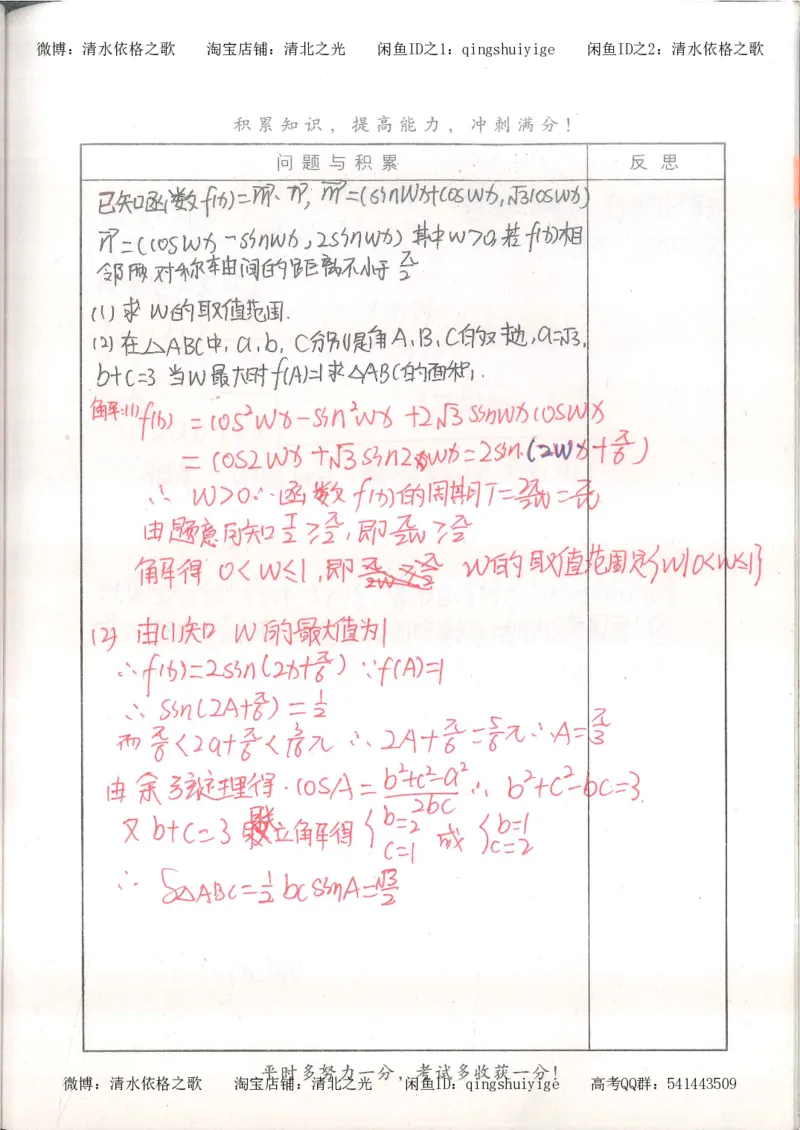 微博：清水依格之歌 淘宝店铺：清北之光 闲鱼ID之1：qingshuiyige 闲鱼ID之2：清水依格之歌
积累知识，提高能力，冲刺满分！
问题与积累 反思
已知函数f(x)=m·n, m=(sinwx+coswx,√3coswx)
n=(coswx-sinwx,2sinwx) 其中w>0,若f(x)相
邻两对称轴间的距离不小于π/2
(1)求w的取值范围.
(2)在△ABC中,a,b,c分别是角A,B,C的对边,a=√3,
b+c=3 当w最大时f(A)=1求△ABC的面积.
解:(1)f(x)=cos²wx-sin²wx+2√3sinwxcoswx
=cos2wx+√3sin2wx=2sin(2wx+π/6)
∴w>0∴函数f(x)的周期T=2π/2w=π/w
由题意可知T/2≥π/2,即π/2w≥π/2
解得0<w≤1,即 w的取值范围是{w|0<w≤1}
(2)由(1)知w的最大值为1
∴f(x)=2sin(2x+π/6) ∵f(A)=1
∴sin(2A+π/6)=1/2
而π/6<2a+π/6<13/6π ∴2A+π/6=5/6π∴A=π/3
由余弦定理得.cosA=b²+c²-a²/2bc∴b²+c²-bc=3
又b+c=3联立解得{b=2 c=1 或{b=1 c=2
∴S△ABC=1/2bcsinA=√3/2
平时多努力一分，考试多收获一分！
微博：清水依格之歌 淘宝店铺：清北之光 闲鱼ID：qingshuiyige 高考QQ群：541443509